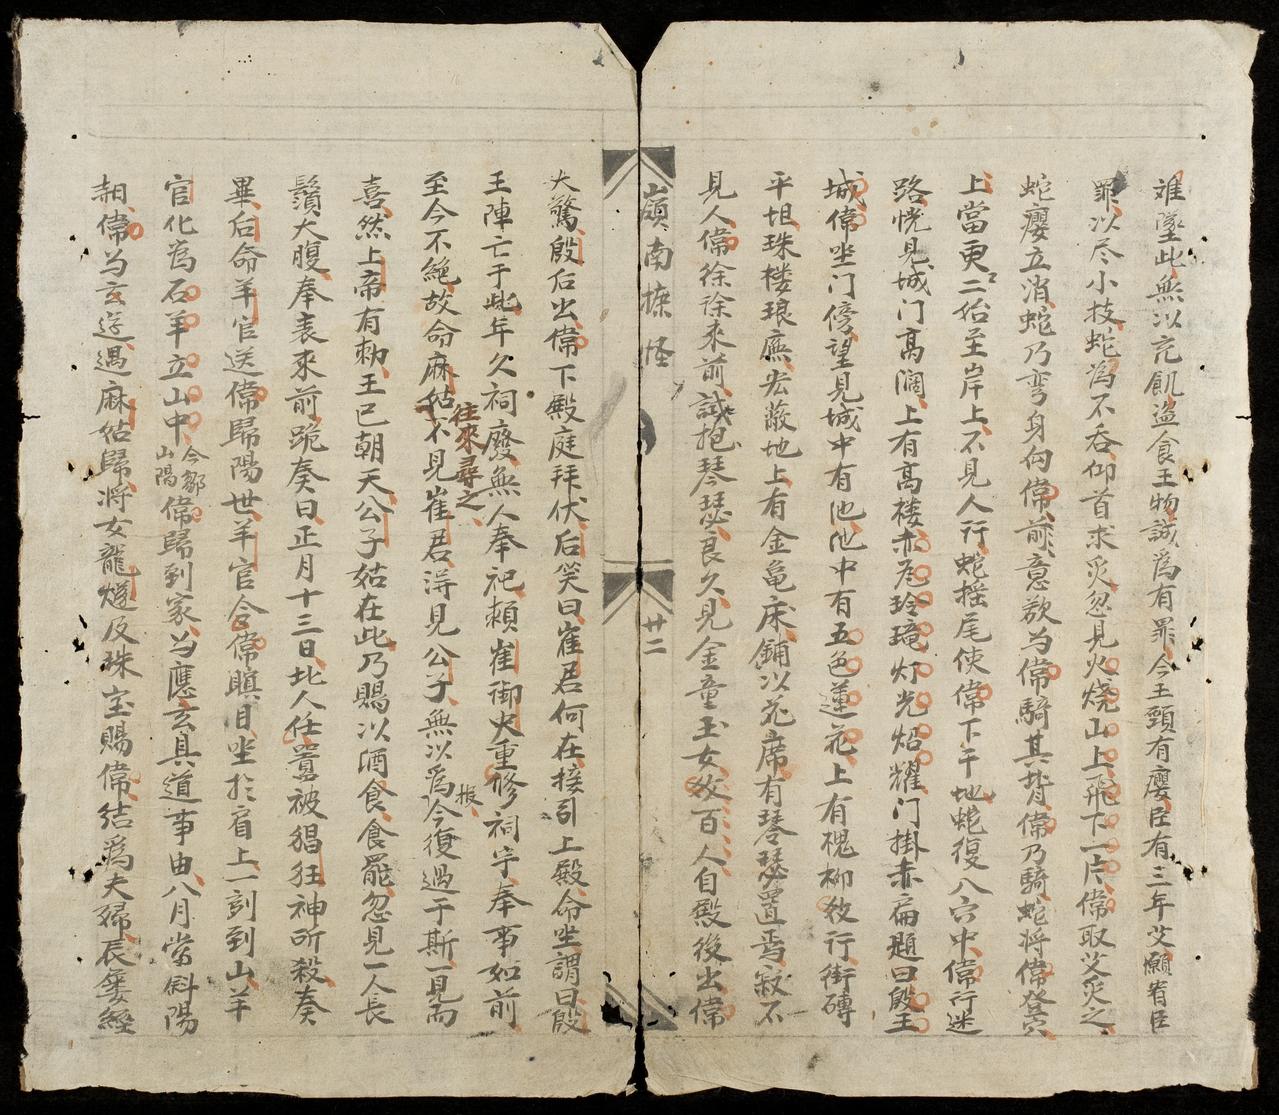 誰墜此無以充飢盗食王物誠為有罪今王頸有癭臣有三年艾願宥臣
罪以尽小技蛇為不吞仰首求灸忽見火燒山上飛下一片偉取艾灸之
蛇癭立消蛇乃弯身向偉前意欲为偉騎其背偉乃騎蛇将偉登穴
上當更二始至岸上不見人行蛇摇尾使偉下于地蛇復入穴中偉行迷
路恍見城门高濶上有高楼赤瓦玲瓏灯光炤耀门掛赤扁題曰殷王
城偉坐门傍望見城中有池池中有五色蓮花上有槐柳杀行街磚
平坦珠楼琅廡宏蔽地上有金亀床鋪以花席有琴瑟置焉寂不
見人偉徐徐来前試抱琴瑟良久見金童玉女数百人自殿後出偉
嶺南摭怪
廿二
大驚殷后出偉下殿庭拜伏后笑曰崔君何在接引上殿命坐謂曰殷
王陣亡于此年久祠廢無人奉祀頼崔御火重修祠宇奉事如前
往來尋之
至今不絶故命麻姑不見崔君湃見公子無以為今復過于斯一見而
报
喜然上帝有勅王已朝天公子姑在此乃賜以酒食食罷忽見一人長
鬚大腹奉表來前跪奏曰正月十三日北人任嚣被猖狂神所殺奏
畢后命羊官送偉歸陽世羊官令偉瞑目坐於肩上一刻到山羊
官化為石羊立山中
今鄒
山陽
偉歸到家为應玄具道事由八月當斜陽
朝偉为玄送過麻姑歸将女龍燧及珠宝賜偉結為夫婦辰屡經